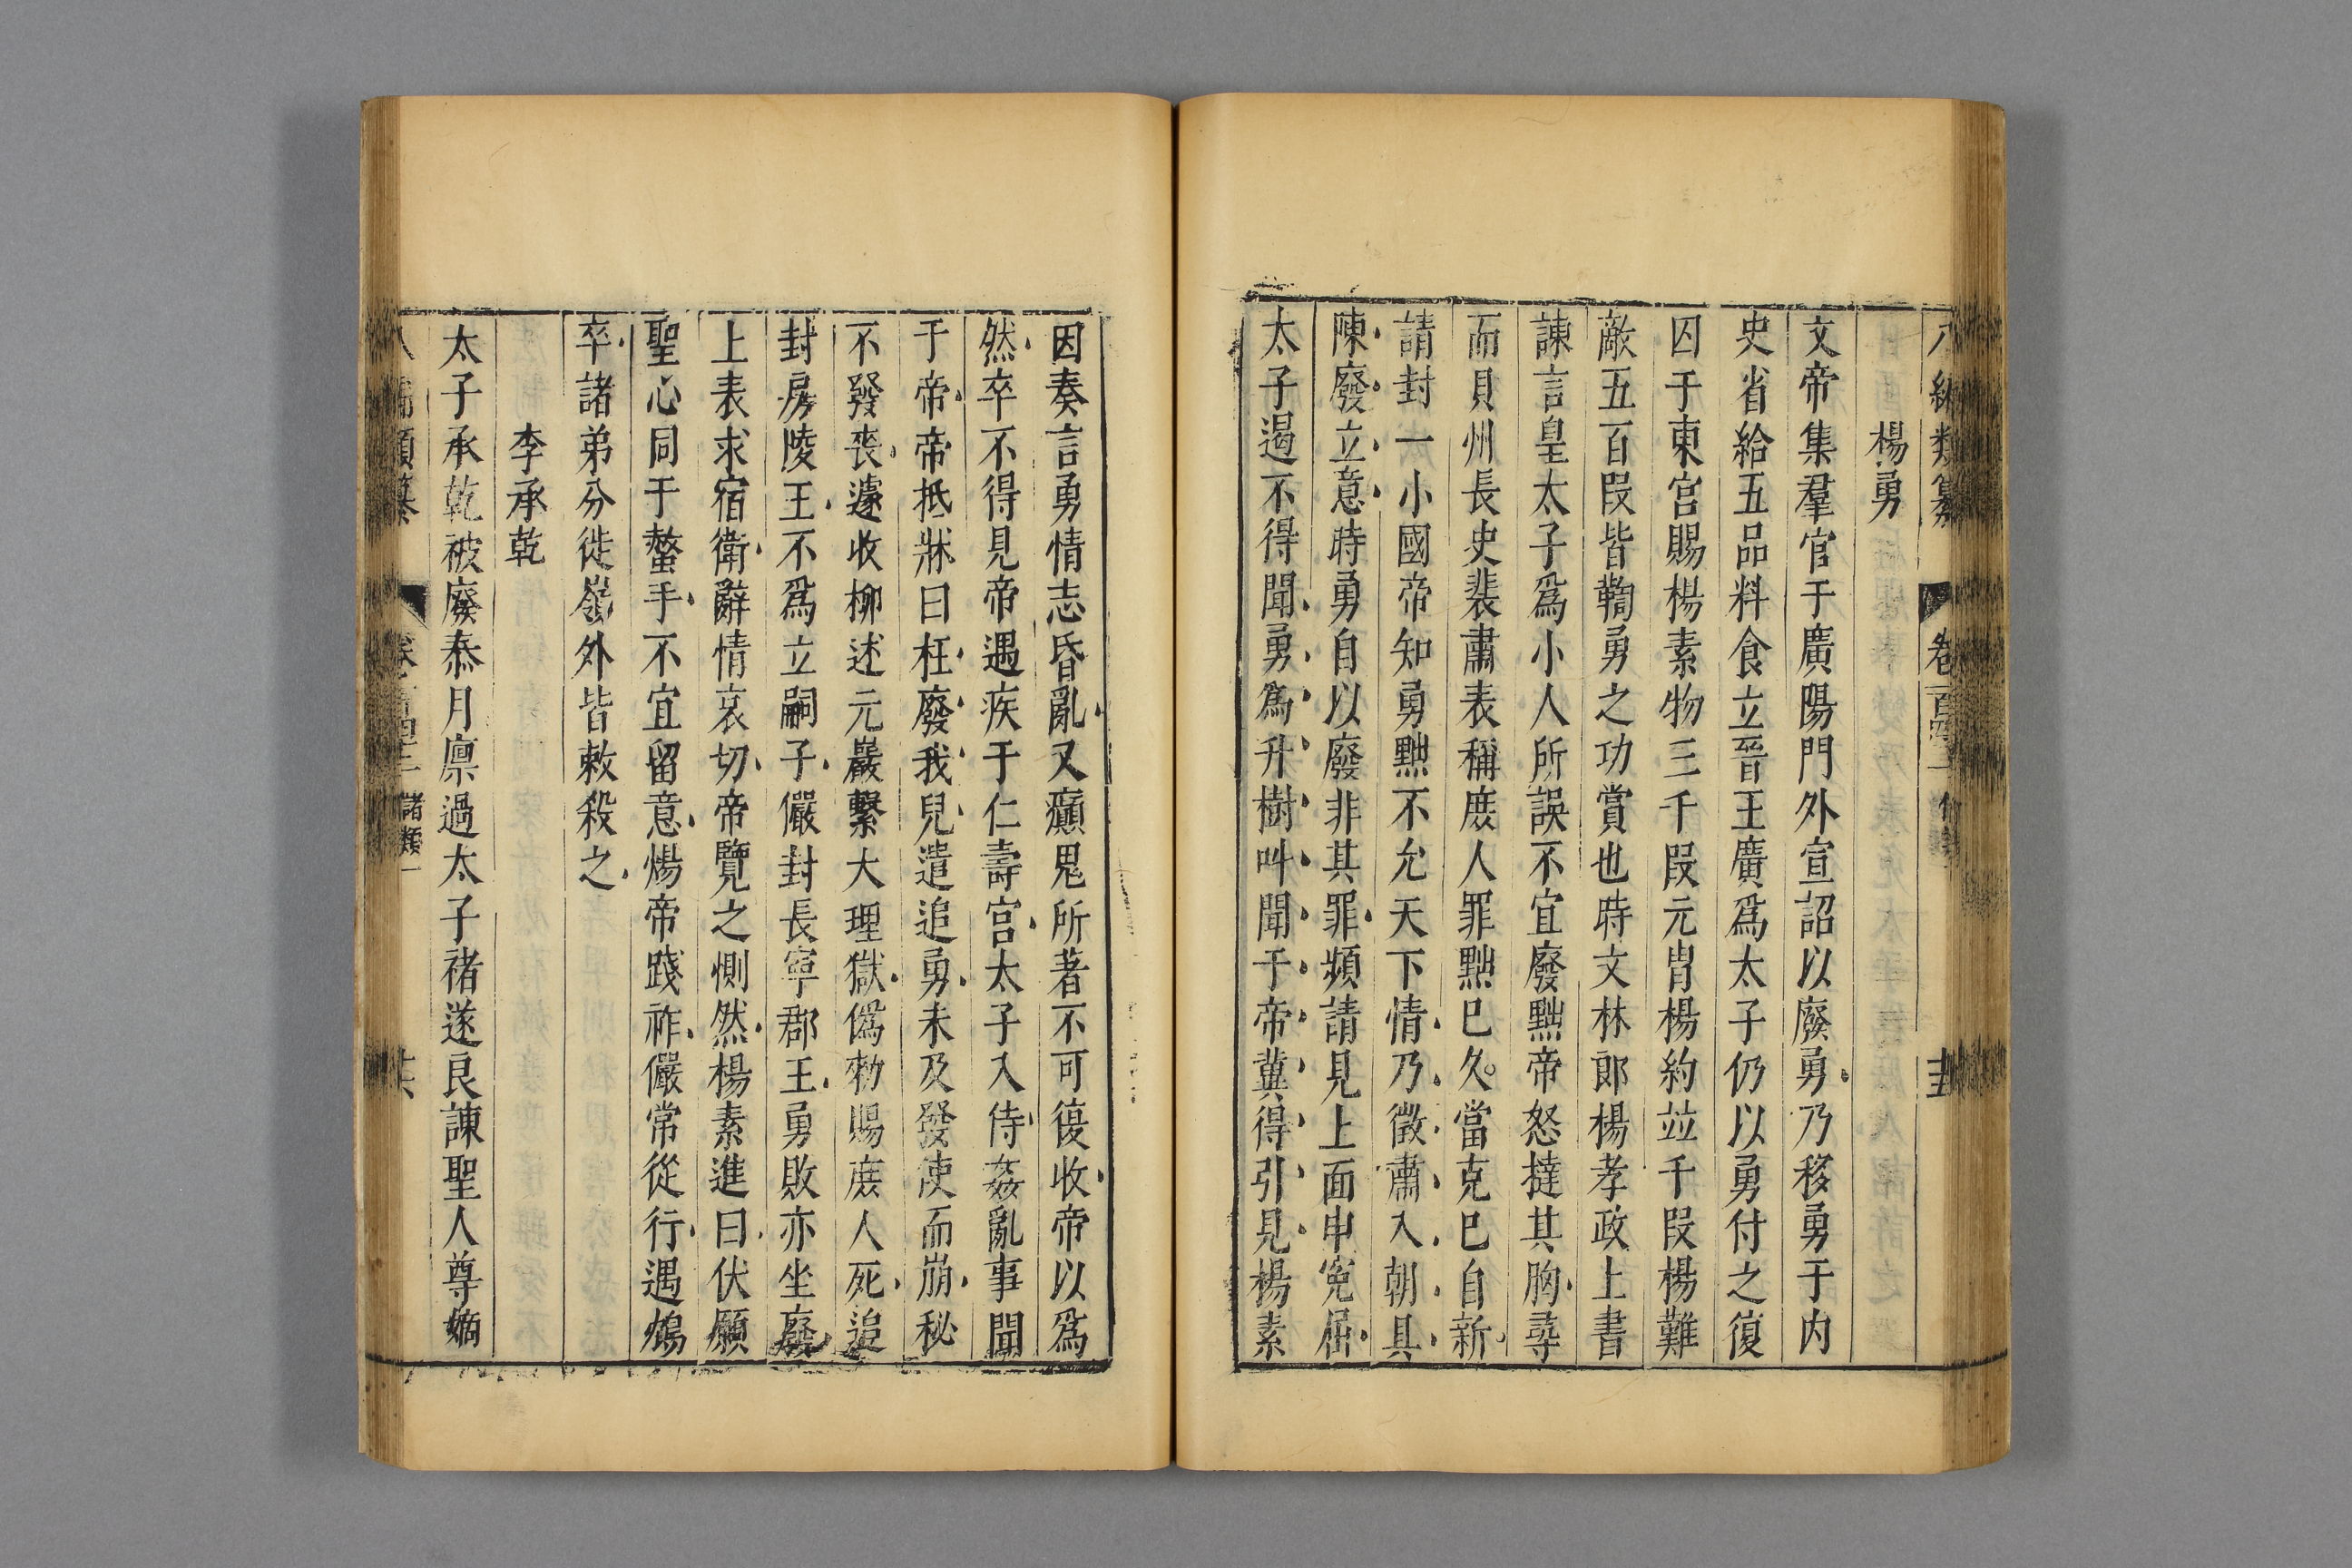 八編類纂 卷一百四十一
楊勇
文帝集羣官于廣陽門外宣詔以廢勇乃移勇于內
史省給五品料食立晉王廣爲太子仍以勇付之復
囚于東宮賜楊素物三千段元胄楊約並千段楊難
敵五百段皆鞫勇之功賞也時文林郎楊孝政上書
諫言皇太子爲小人所誤不宜廢黜帝怒撻其胸尋
而貝州長史裴肅表稱庶人罪黜已久當克已自新
請封一小國帝知勇黜不允天下情乃徵肅入朝具
陳廢立意時勇自以廢非其罪頻請見上面申寃屈
太子遏不得聞勇爲升樹叫聞于帝冀得引見楊素
因奏言勇情志昏亂又癲鬼所著不可復收帝以爲
然卒不得見帝遇疾于仁壽宮太子入侍姦亂事聞
于帝帝抵牀曰枉廢我兒遣追勇未及發使而崩秘
不發喪遽收柳述元巖繫大理獄僞勑賜庶人死追
封房陵王不爲立嗣子儼封長寧郡王勇敗亦坐廢
上表求宿衛辭情哀切帝覽之惻然楊素進曰伏願
聖心同于螫手不宜留意煬帝踐祚儼常從行遇鴆
卒諸弟分徙嶺外皆敕殺之
李承乾
太子承乾被廢泰月廪過太子褚遂良諫聖人尊嫡
八編類纂 諸類一 廿六